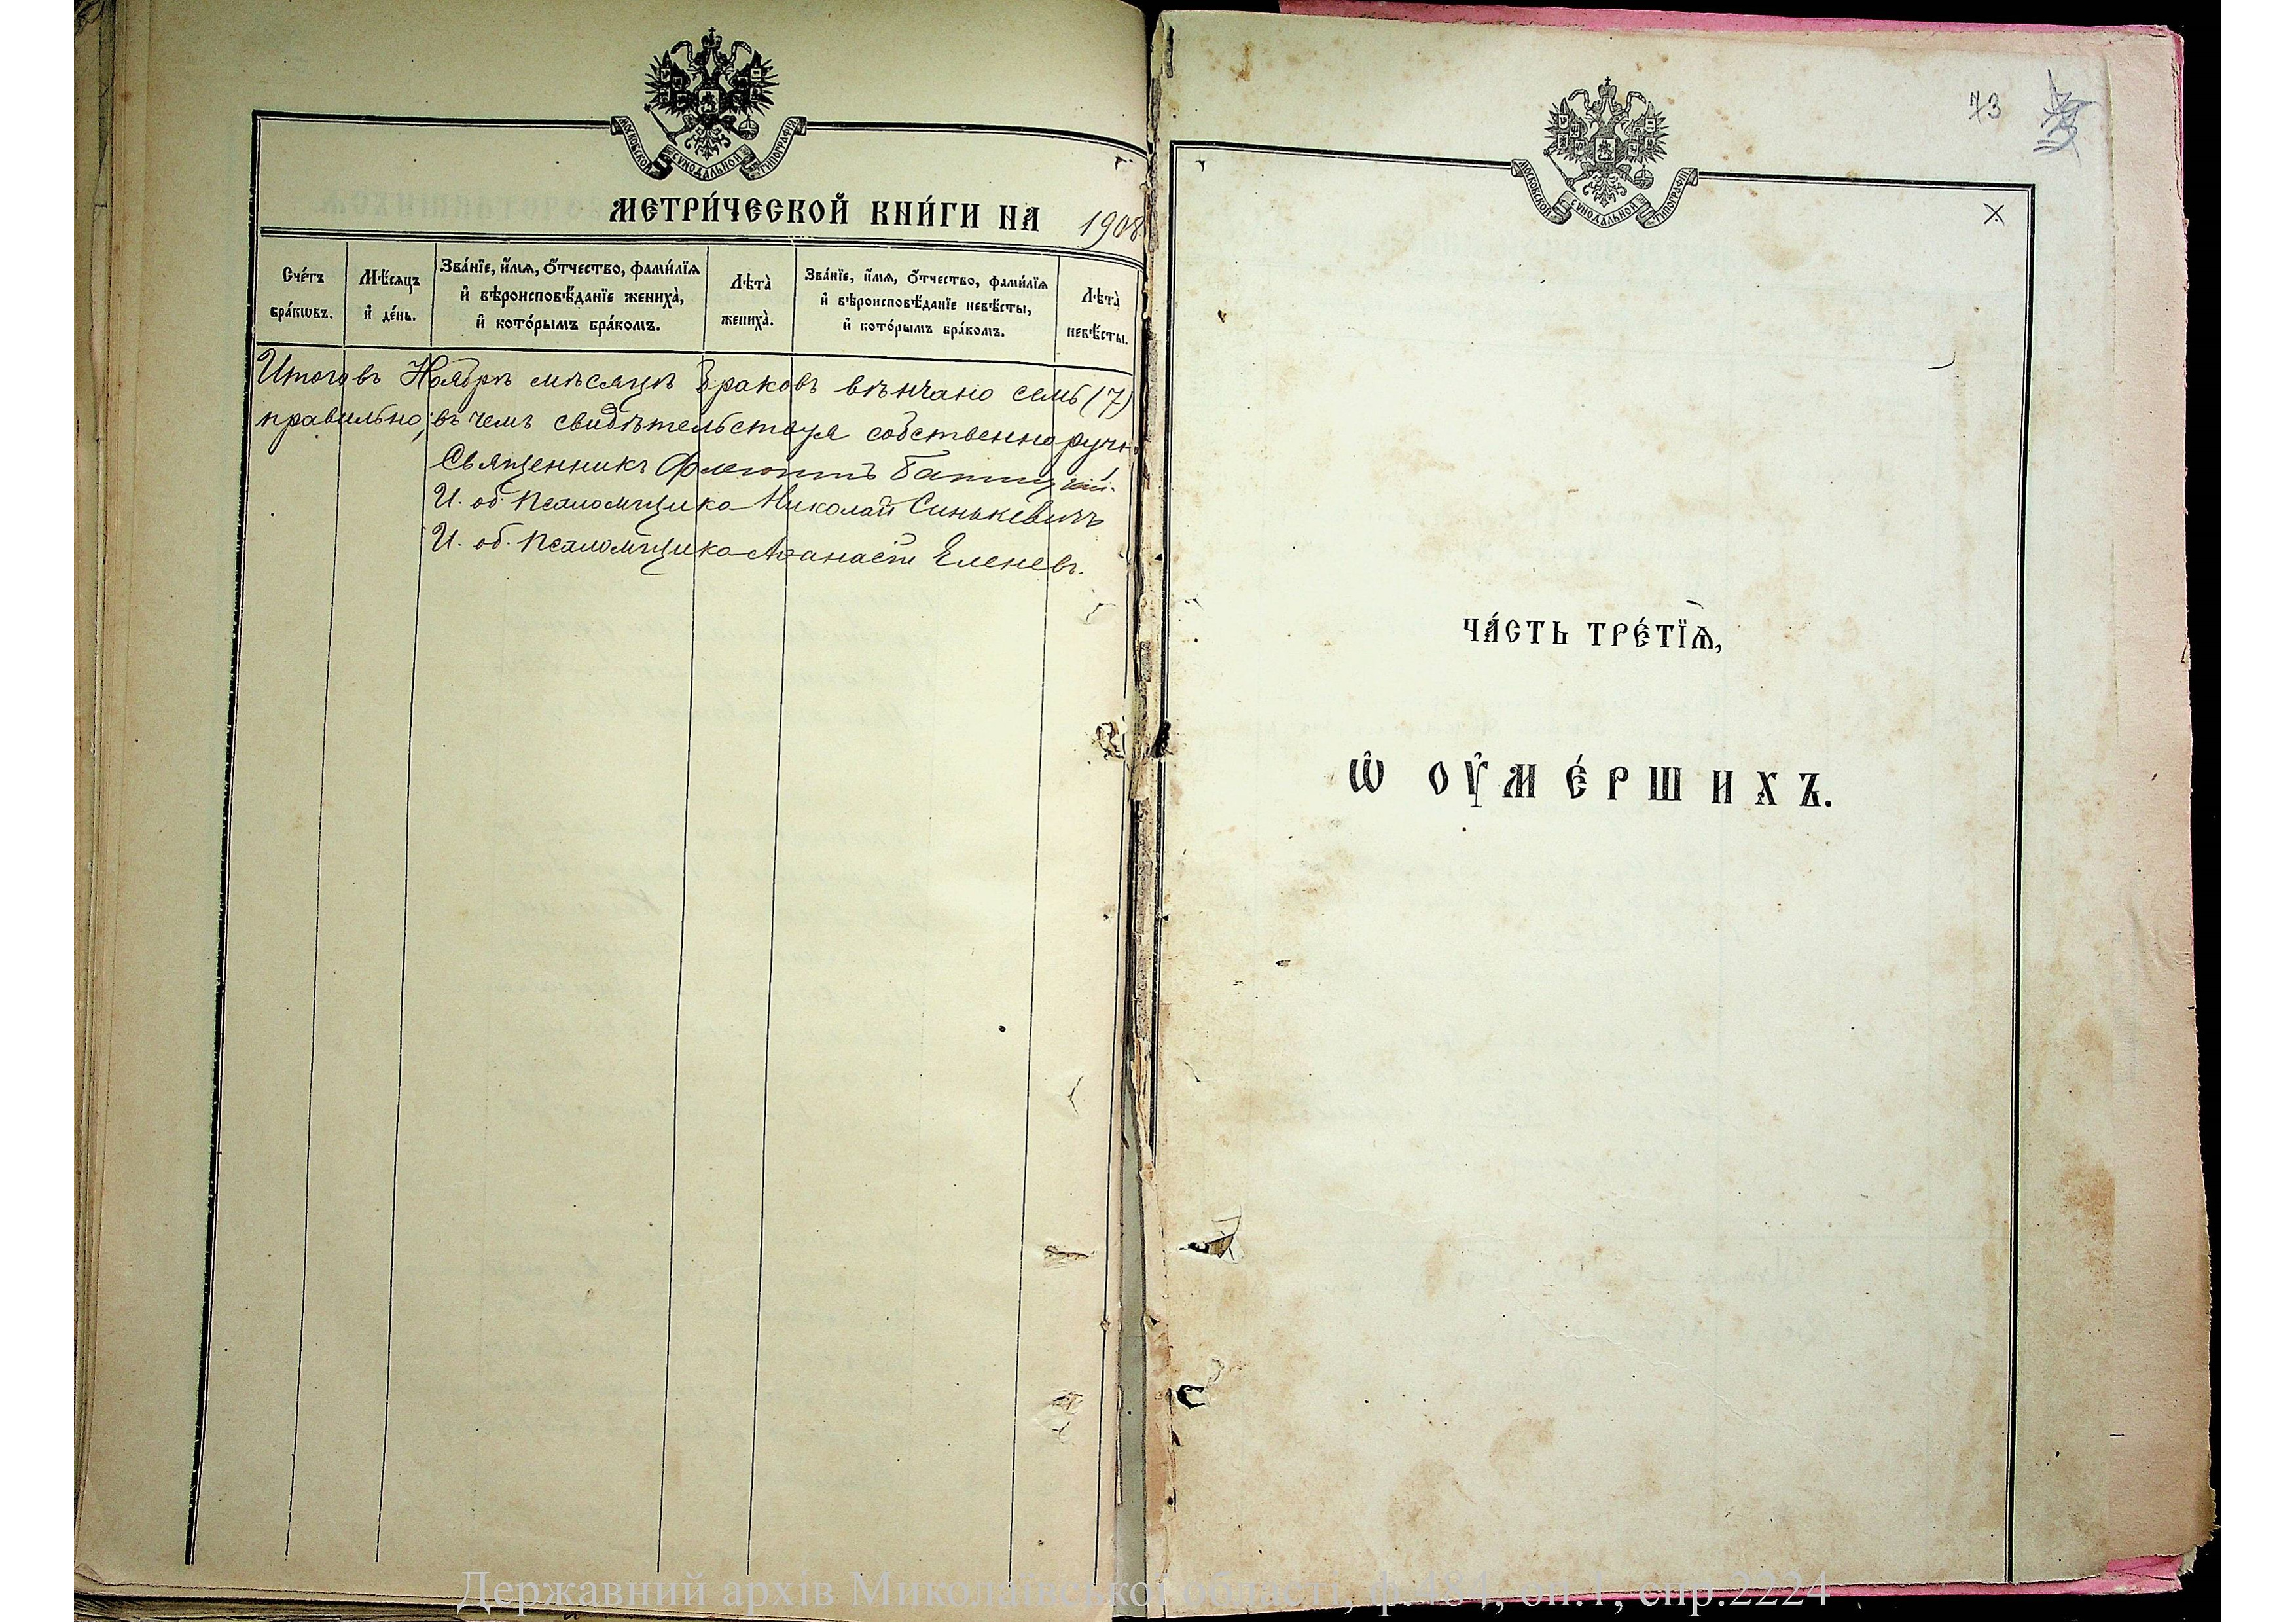 МОСКОВСКОЙ СѴНОДАЛЬНОЙ ТИПОГРАФІИ
МЕТРИ́ЧЕСКОЙ КНИ́ГИ НА 1908
Сче́тъ бра́кωвъ.
Мѣ́сяцъ и҆ де́нь.
Зва́нїе, и҆́мя, ѻ҆́тчество, фами́лїя
и҆ вѣроисповѣ́данїе жениха̀,
и҆ кото́рымъ бра́комъ.
Лѣта̀ жениха̀.
Зва́нїе, и҆́мя, ѻ҆́тчество, фами́лїя
и҆ вѣроисповѣ́данїе невѣ́сты,
и҆ кото́рымъ бра́комъ.
Лѣта̀ невѣ́сты.
Итого въ Ноябрѣ мѣсяцѣ Браковъ вѣнчано семь (7)
правильно, въ чемъ свидѣтельствуя собственноручн.
Священникъ
И. об. псаломщика Николай Синькевичъ
И. об. псаломщика Аѳанасій Еленевъ.
73
МОСКОВСКОЙ СѴНОДАЛЬНОЙ ТИПОГРАФІИ
ЧА́СТЬ ТРЕ́ТЇѦ,
Ѽ ОУ҆МЕ́РШИХЪ.
Державний архів Миколаївської області, ф.484, оп.1, спр.2224